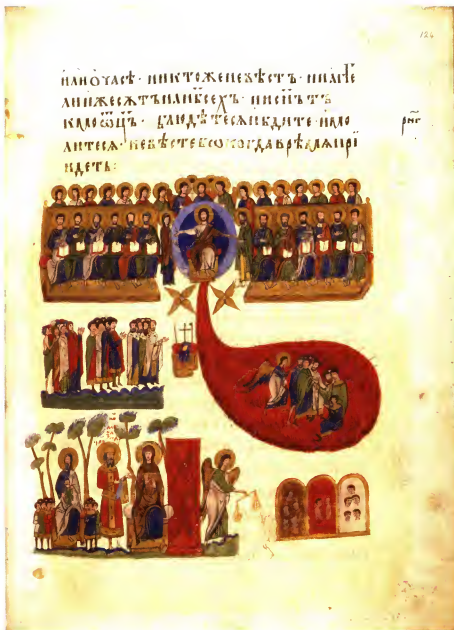 124
или о часѣ · никтоже не вѣстъ · ни агг҃е
ли иже сѫтъ на нб҃сехъ · ни сн҃ъ тъ
кмо ѡц҃ъ · блюдѣтеся и бдите · и мо
литеся · не вѣсте бо когда врѣмя прї
идетъ :